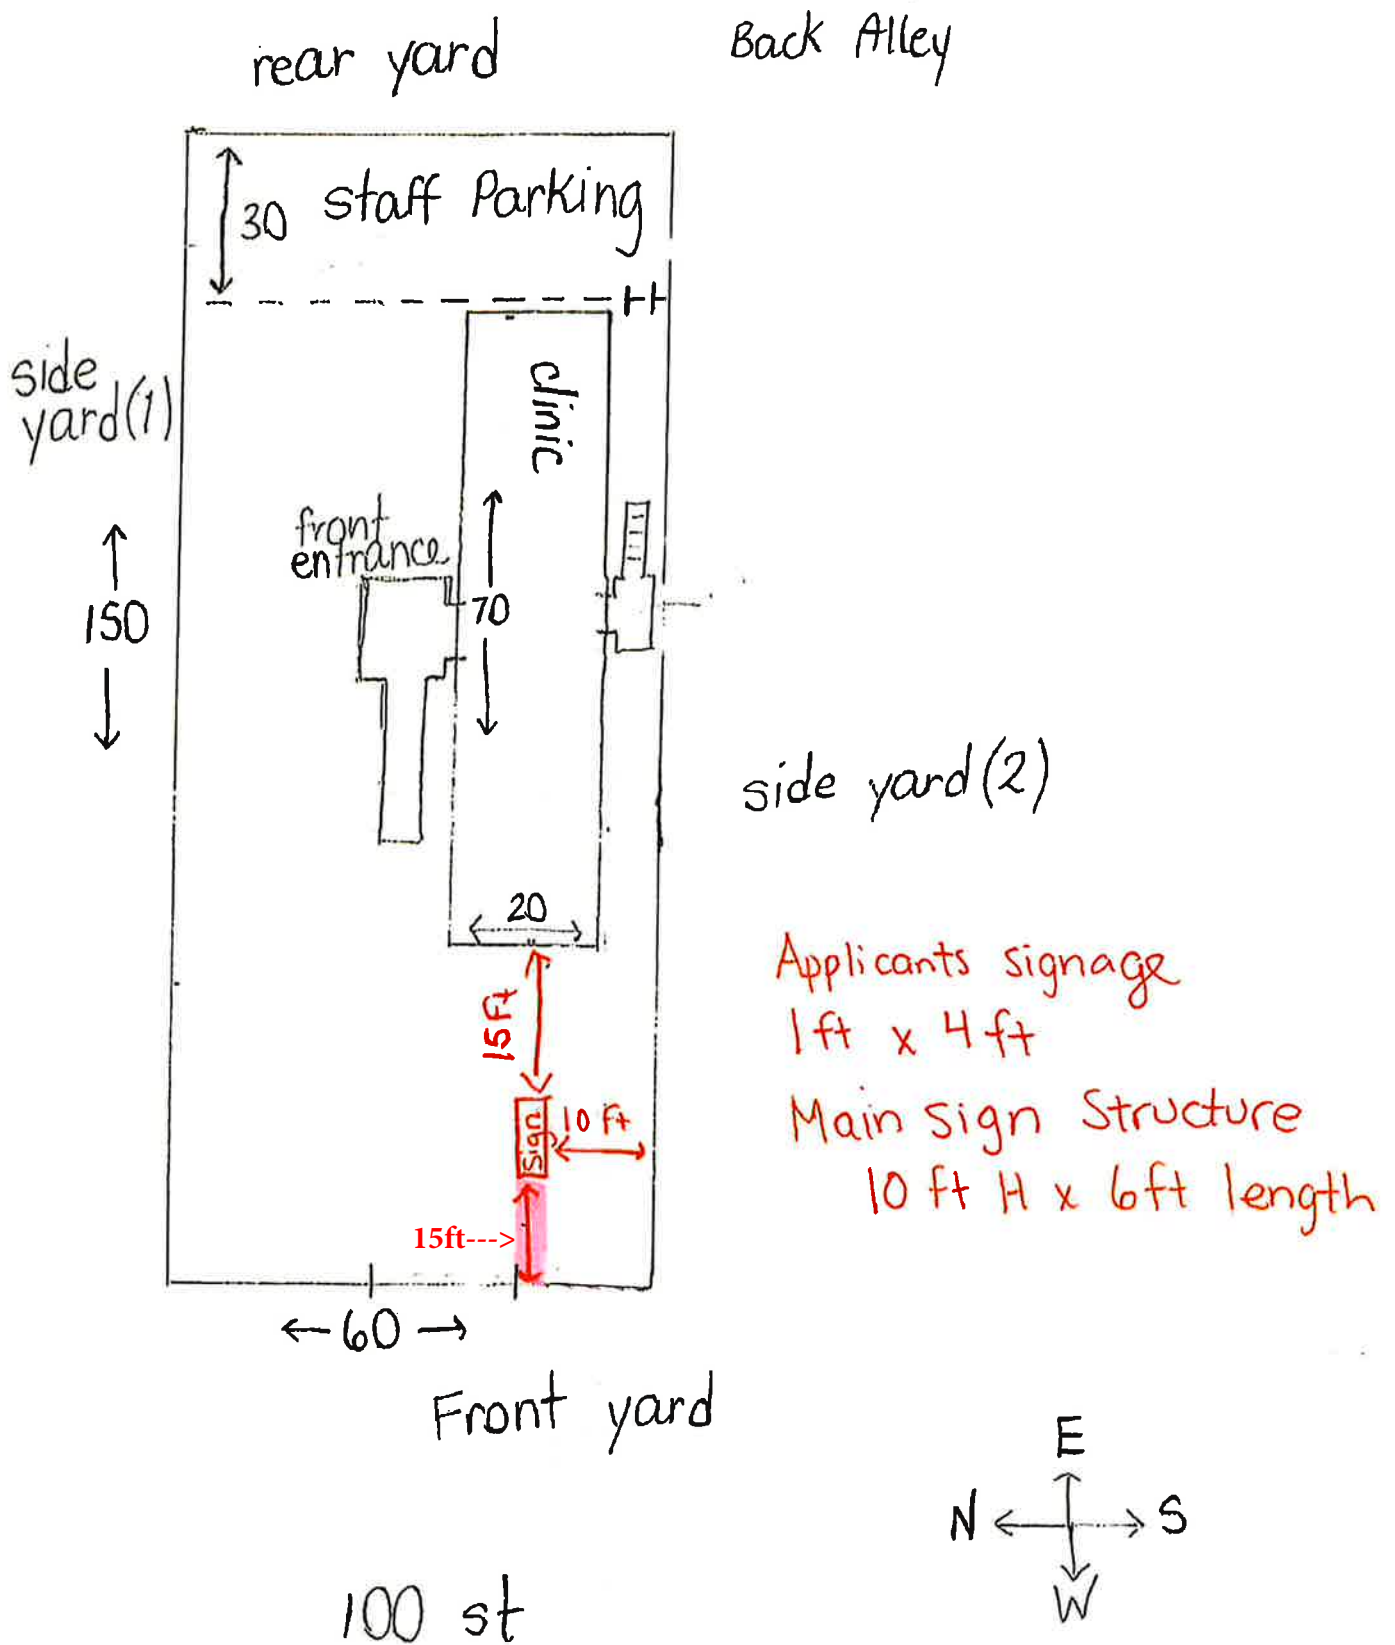 rear yard
Back Alley
30
staff Parking
side
yard(1)
clinic
front
entrance
70
150
side yard(2)
20
15ft
Applicants signage
1ft x 4ft
Sign
10 ft
Main Sign Structure
10 ft H x 6ft length
15ft--->
60
Front yard
E
N
S
W
100 st